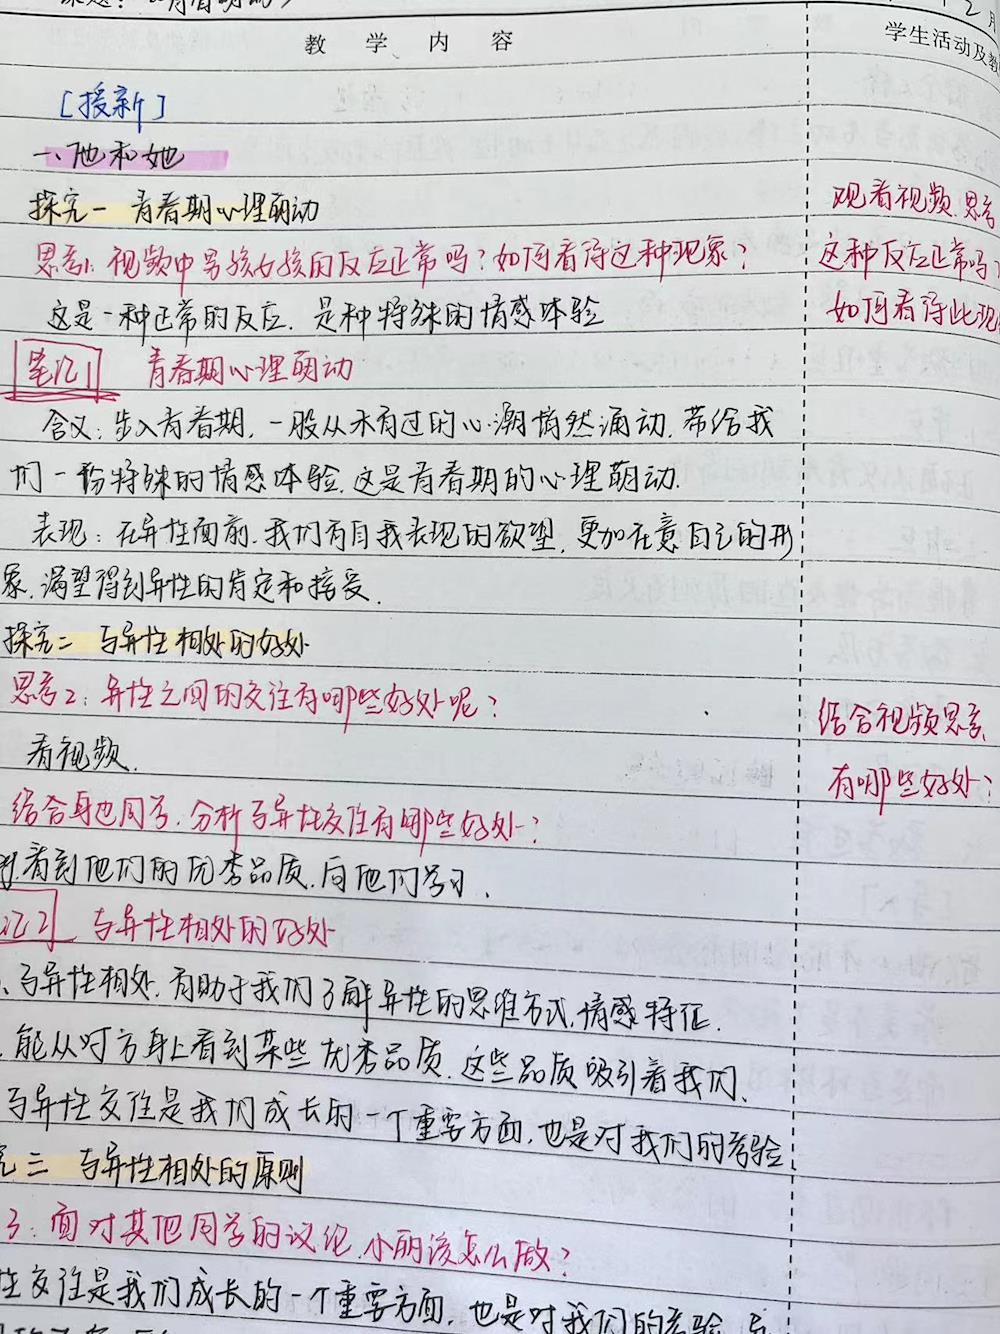 课题：《青春萌动》
2月
教 学 内 容
学生活动及教
[授新]
一、他和她
探究一 青春期心理萌动
观看视频.思考
思考1：视频中男孩女孩的反应正常吗？如何看待这种现象？
这种反应正常吗？
这是一种正常的反应．是种特殊的情感体验
如何看待此现
笔记1 青春期心理萌动
含义：步入青春期，一股从未有过的心潮悄然涌动，带给我
们一份特殊的情感体验．这是青春期的心理萌动.
表现：在异性面前．我们有自我表现的欲望，更加在意自己的形
象．渴望得到异性的肯定和接受．
探究二 与异性相处的好处
思考2：异性之间的交往有哪些好处呢？
结合视频思考
看视频．
有哪些好处？
结合身边同学．分析与异性交往有哪些好处？
看到他们的优秀品质．向他们学习．
记2 与异性相处的好处
、与异性相处．有助于我们了解异性的思维方式．情感特征．
．能从对方身上看到某些优秀品质．这些品质吸引着我们．
与异性交往是我们成长的一个重要方面．也是对我们的考验
究三 与异性相处的原则
3：面对其他同学的议论．小丽该怎么做？
性交往是我们成长的一个重要方面．也是对我们的考验．